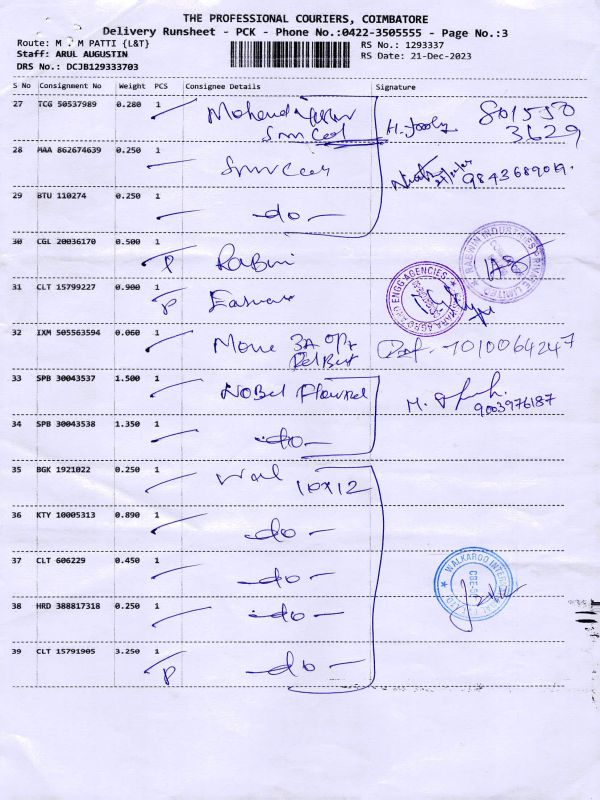 THE PROFESSIONAL COURIERS, COIMBATORE
Delivery Runsheet - PCK - Phone No.:0422-3505555 - Page No.:3
Route: M . M PATTI {L&T}
RS No.: 1293337
Staff: ARUL AUGUSTIN
RS Date: 21-Dec-2023
DRS No.: DCJB129333703
S No Consignment No Weight PCS Consignee Details Signature
27 TCG 50537989 0.280 1
3629
28 MAA 862674639 0.250 1
9843689019.
29 BTU 110274 0.250 1 -do-
30 CGL 20036170 0.500 1 P Rabwin
RABWIN INDUSTRIES PRIVATE LIMITED
31 CLT 15799227 0.900 1 P
ENGG AGENCIES
32 IXM 505563594 0.060 1 3A
7010064247
33 SPB 30043537 1.500 1 Nobel
M.
9003976187
34 SPB 30043538 1.350 1 -do-
35 BGK 1921022 0.250 1 10x12
36 KTY 10005313 0.890 1 -do-
37 CLT 606229 0.450 1 -do-
WALKAROO
38 HRD 388817318 0.250 1 -do-
39 CLT 15791905 3.250 1 P -do-